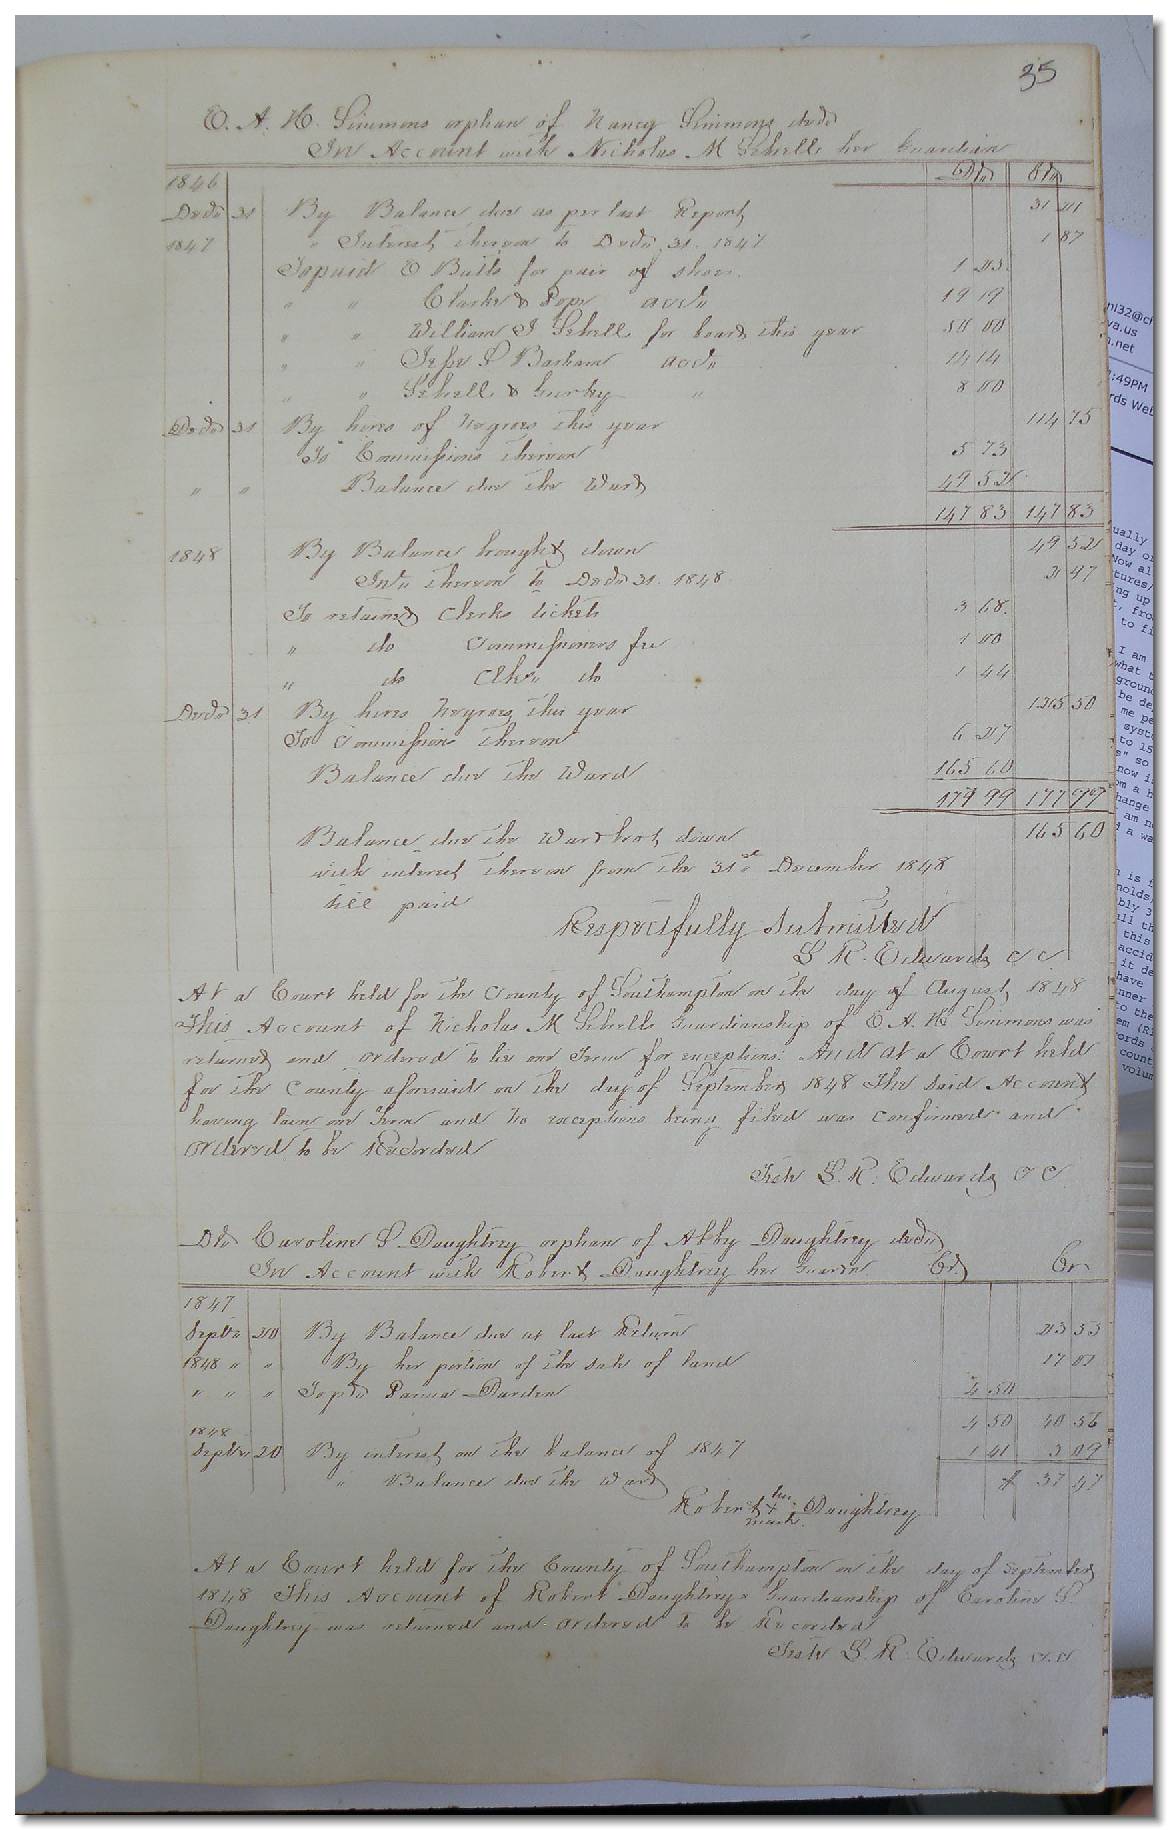 35
E. A. H. Simmons orphan of Nancy Simmons decd
In Account with Nicholas M Sebrell her Guardian
1846 Dr Cr
Decr 31 By Balance due as per last Report 31 21
1847 " Interest thereon to Decr 31. 1847 1 87
To paid E Butts for pair of shoes. 1 25
" " Clarke & Pope acct 19 19
" " William J Sebrell for board this year 50 00
" " Jesse S Barham acct 14 14
" " Sebrell & Gurley " 8 00
Decr 31 By hires of Negroes this year 114 75
To Commissions thereon 5 73
" " Balance due the Ward 49 52
147 83 147 83
1848 By Balance brought down 49 52
Int thereon to Decr 31. 1848 2 97
To retained Clerks tickets 3 68
" do Commissioners fee 1 00
" do Clks do 1 44
Decr 31 By hires Negroes this year 125 50
To Commissions thereon 6 27
Balance due the Ward 165 60
177 99 177 99
Balance due the Ward brot down 165 60
with interest thereon from the 31st December 1848
till paid
Respectfully Submitted
L R. Edwards C C
At a Court held for the County of Southampton on the day of August 1848
This Account of Nicholas M Sebrells Guardianship of E A. H Simmons was
returned and ordered to lie one Term for exceptions: And at a Court held
for the County aforesaid on the day of September 1848 The said Account
having lain one Term and no exceptions being filed was confirmed and
ordered to be Recorded
Teste L. R. Edwards C C
Dr Caroline S Daughtrey orphan of Abby Daughtrey decd
In Account with Robert Daughtrey her Guardn Cr
1847
Septr 20 By Balance due at last Return 23 53
1848 " " By her portion of the sale of land 17 01
" " " To pd Darden 4 50
4 50 40 56
1848
Septr 20 By interest on the balance of 1847 1 41 3 09
" Balance due the Ward 37 47
Robert his + mark Daughtrey
At a Court held for the County of Southampton on the day of September
1848 This Account of Robert Daughtreys Guardianship of Caroline S
Daughtrey was returned and ordered to be Recorded
Teste L. R. Edwards C.C